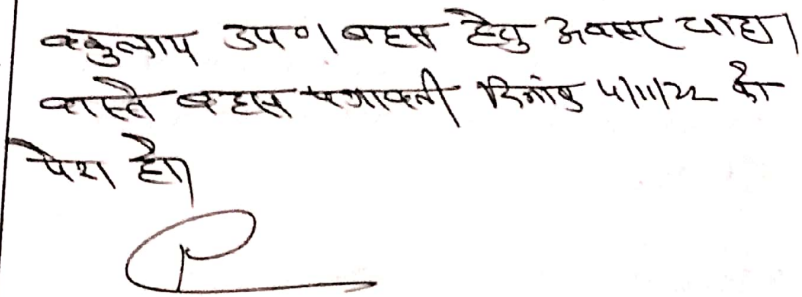 वकुलाय उप०। बहस हेतु अवसर चाहा।
वास्ते बहस पत्रावली दिनांक 4/11/22 को
पेश हो।